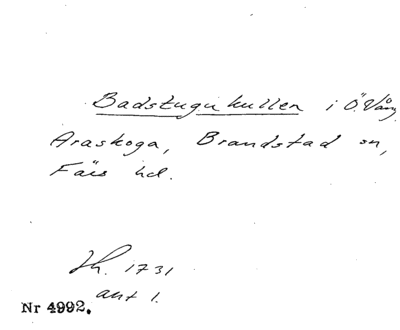 Badstugukullen i Ö. Vång
Araskoga, Brandstad sn,
Färs hd.
Lh. 1731
ant 1.
Nr 4992.